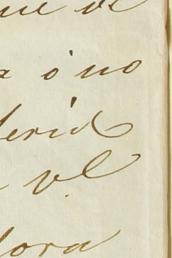 ue de
a ó no
ferid
a vl
dora